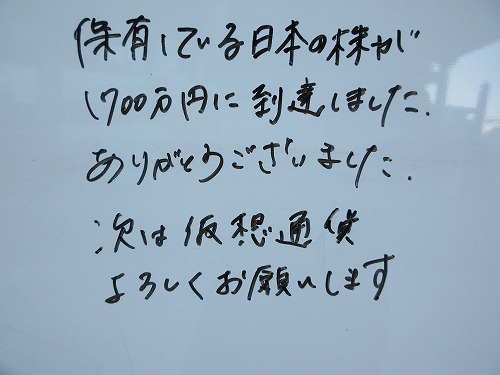 保有している日本の株が
1700万円に到達しました.
ありがとうございました.
次は仮想通貨
よろしくお願いします